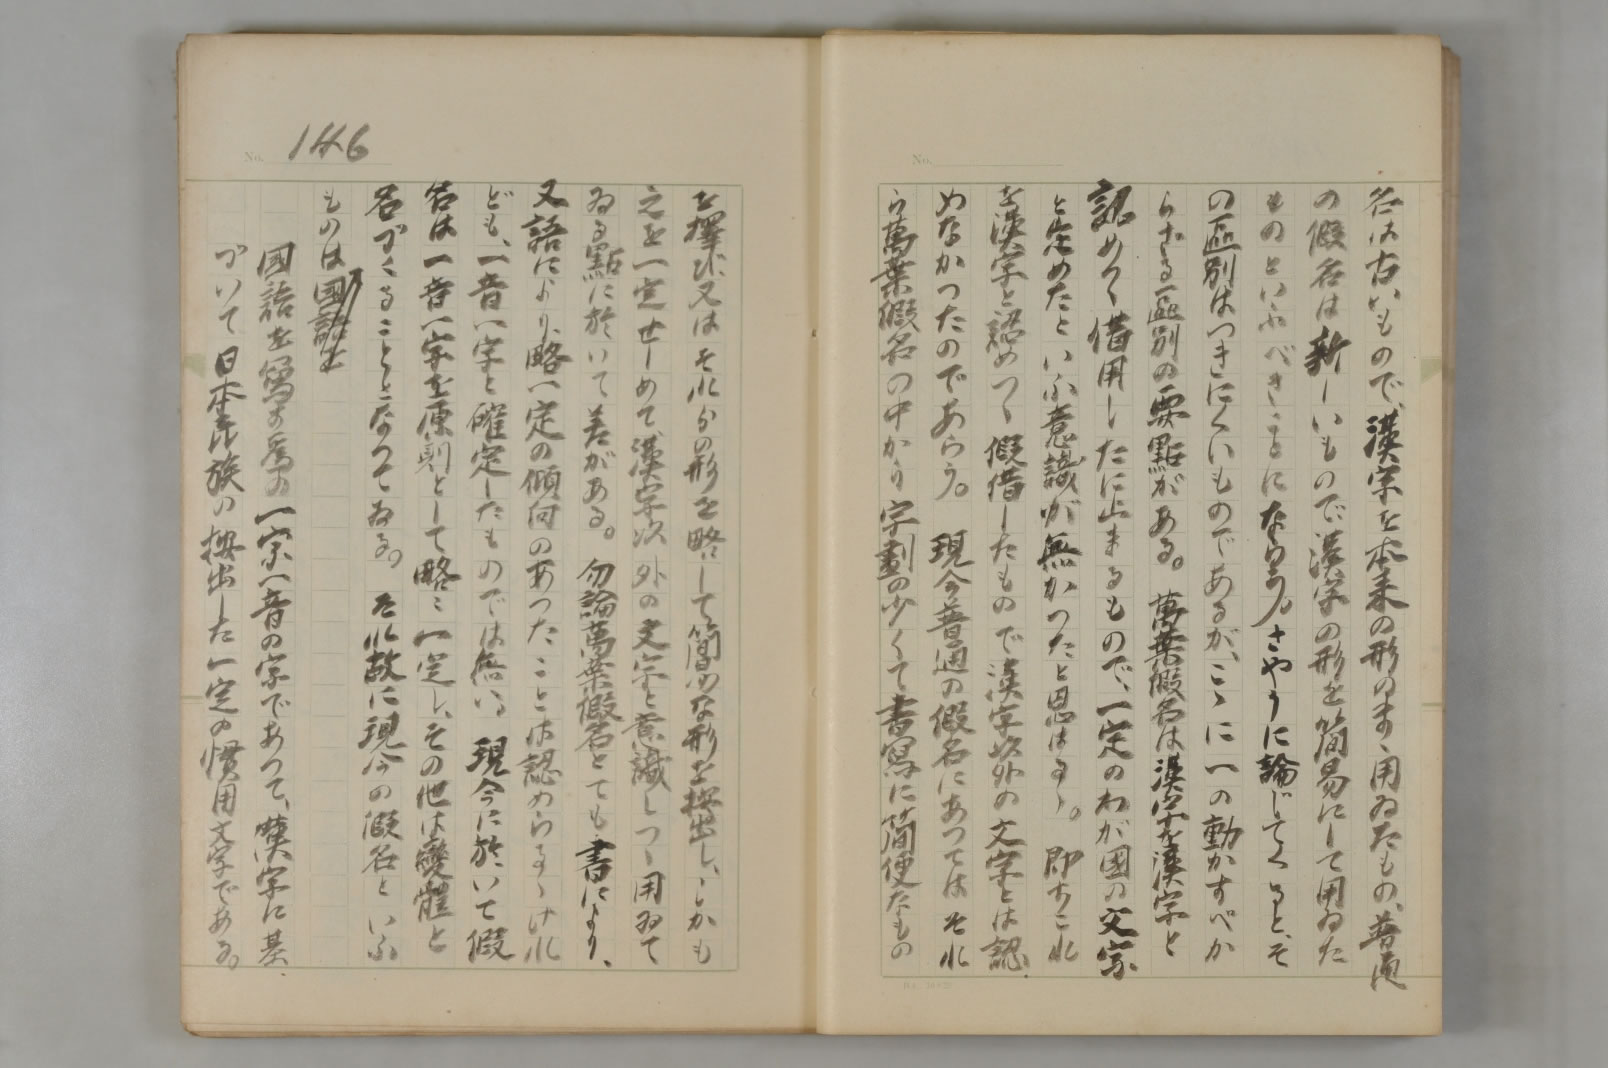 名は古いもので、漢字を本来の形のまゝ用ゐたもの、普通
の假名は新しいもので漢字の形を簡易にして用ゐた
ものといふべきことにならう。さやうに論じてくると、そ
の區別はつきにくいものであるが、こゝに一の動かすべか
らざる區別の要點がある。萬葉假名は漢字を漢字と
認めて借用したに止まるもので、一定のわが國の文字
と定めたといふ意識が無かつたと思はるゝ。即ちこれ
を漢字と認めつゝ假借したもので漢字以外の文字とは認
めなかつたのであらう。現今普通の假名にあつてはそれ
ら萬葉假名の中から字劃の少くて書寫に簡便なもの
No.
No. 146
を擇び、又はそれらの形を略して簡易な形を按出し、しかも
之を一定せしめて、漢字以外の文字と意識しつゝ用ゐて
ゐる點に於いて差がある。勿論萬葉假名とても書により、
又語により、略一定の傾向のあつたことは認めらるゝけれ
ども、一音一字と確定したものでは無い。現今に於いて假
名は一音一字を原則として略ゝ一定し、その他は變體と
名づくることゝなつてゐる。それ故に現今の假名といふ
ものは國語を
國語を寫す爲の一字一音の字であつて、漢字に基
づいて日本民族の按出した一定の慣用文字である。